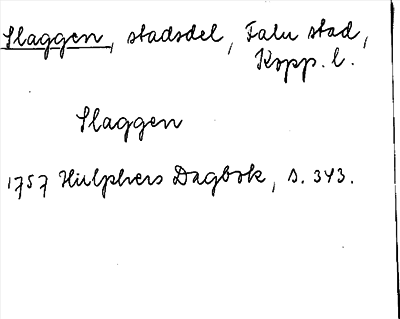 Slaggen, stadsdel, Falu stad,
Kopp. l.
Slaggen
1757 Hülphers Dagbok, s. 343.